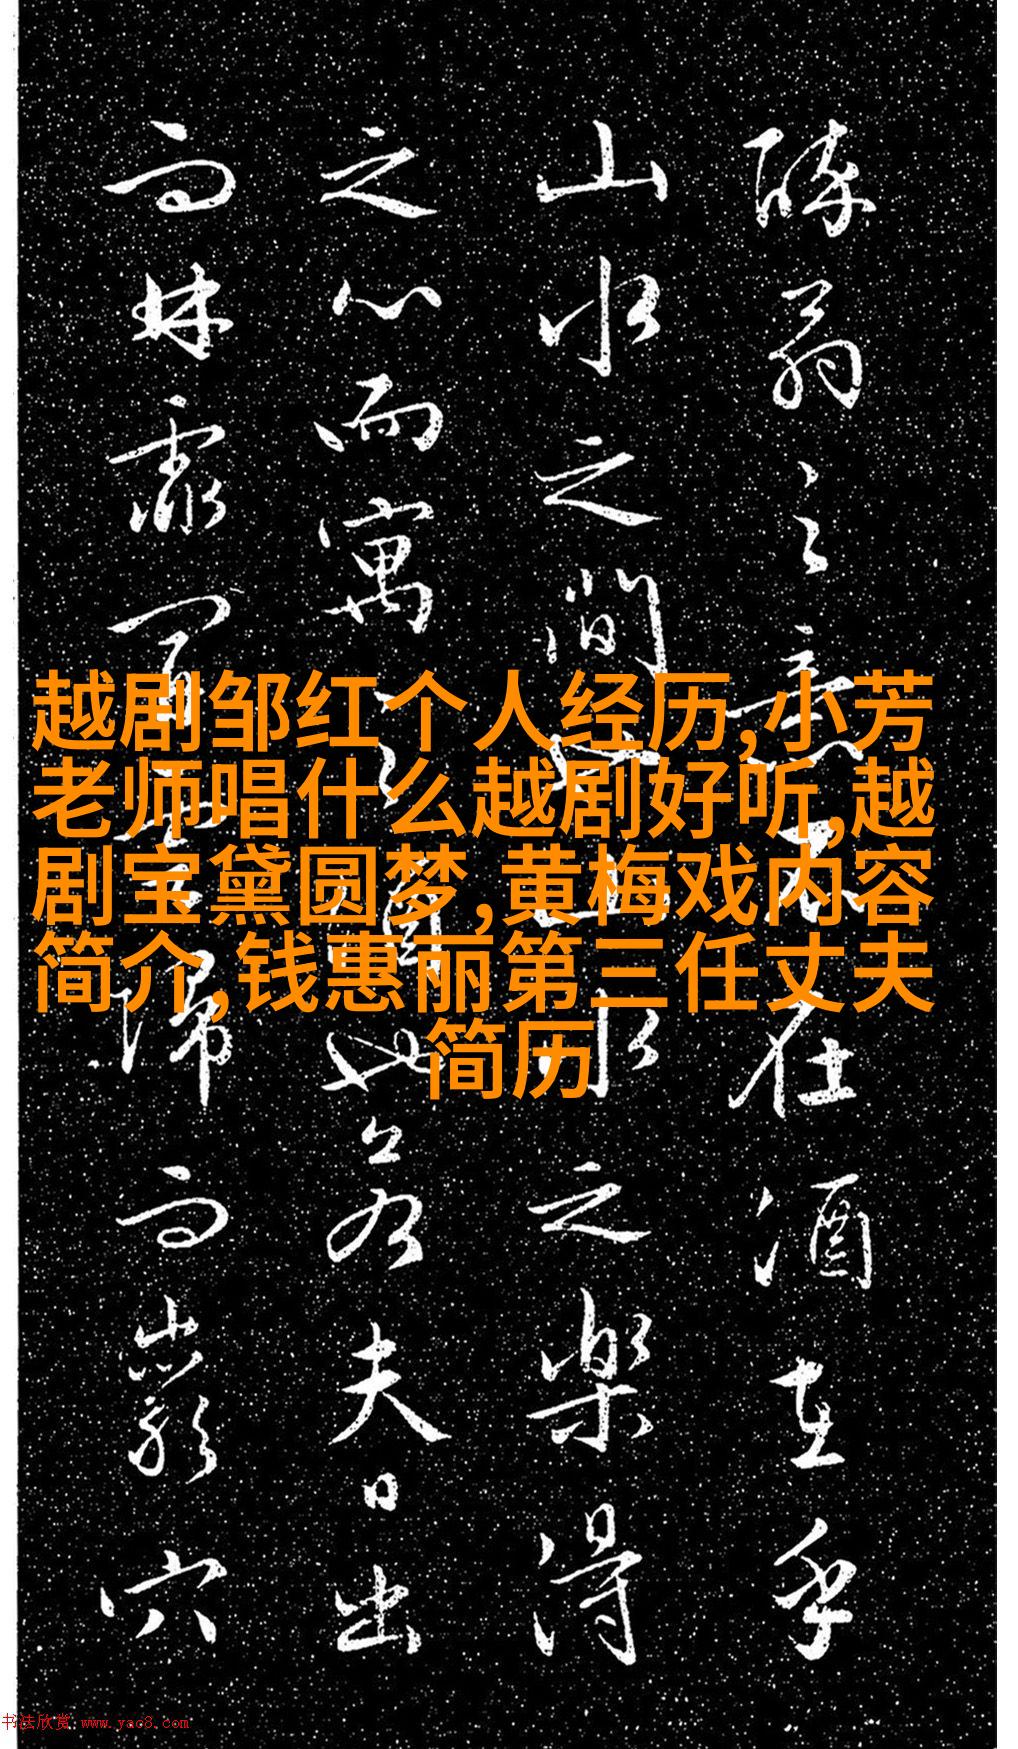 越剧邹红个人经历,小芳
老师唱什么越剧好听,越
剧宝黛圆梦,黄梅戏内容
简介,钱惠丽第三任丈夫
简历
酔翁之意不在酒在乎
山水之間也山水之樂得
之心而寓之酒也若夫日出
而林霏開雲歸而巖穴
书法欣赏 www.yac8.com